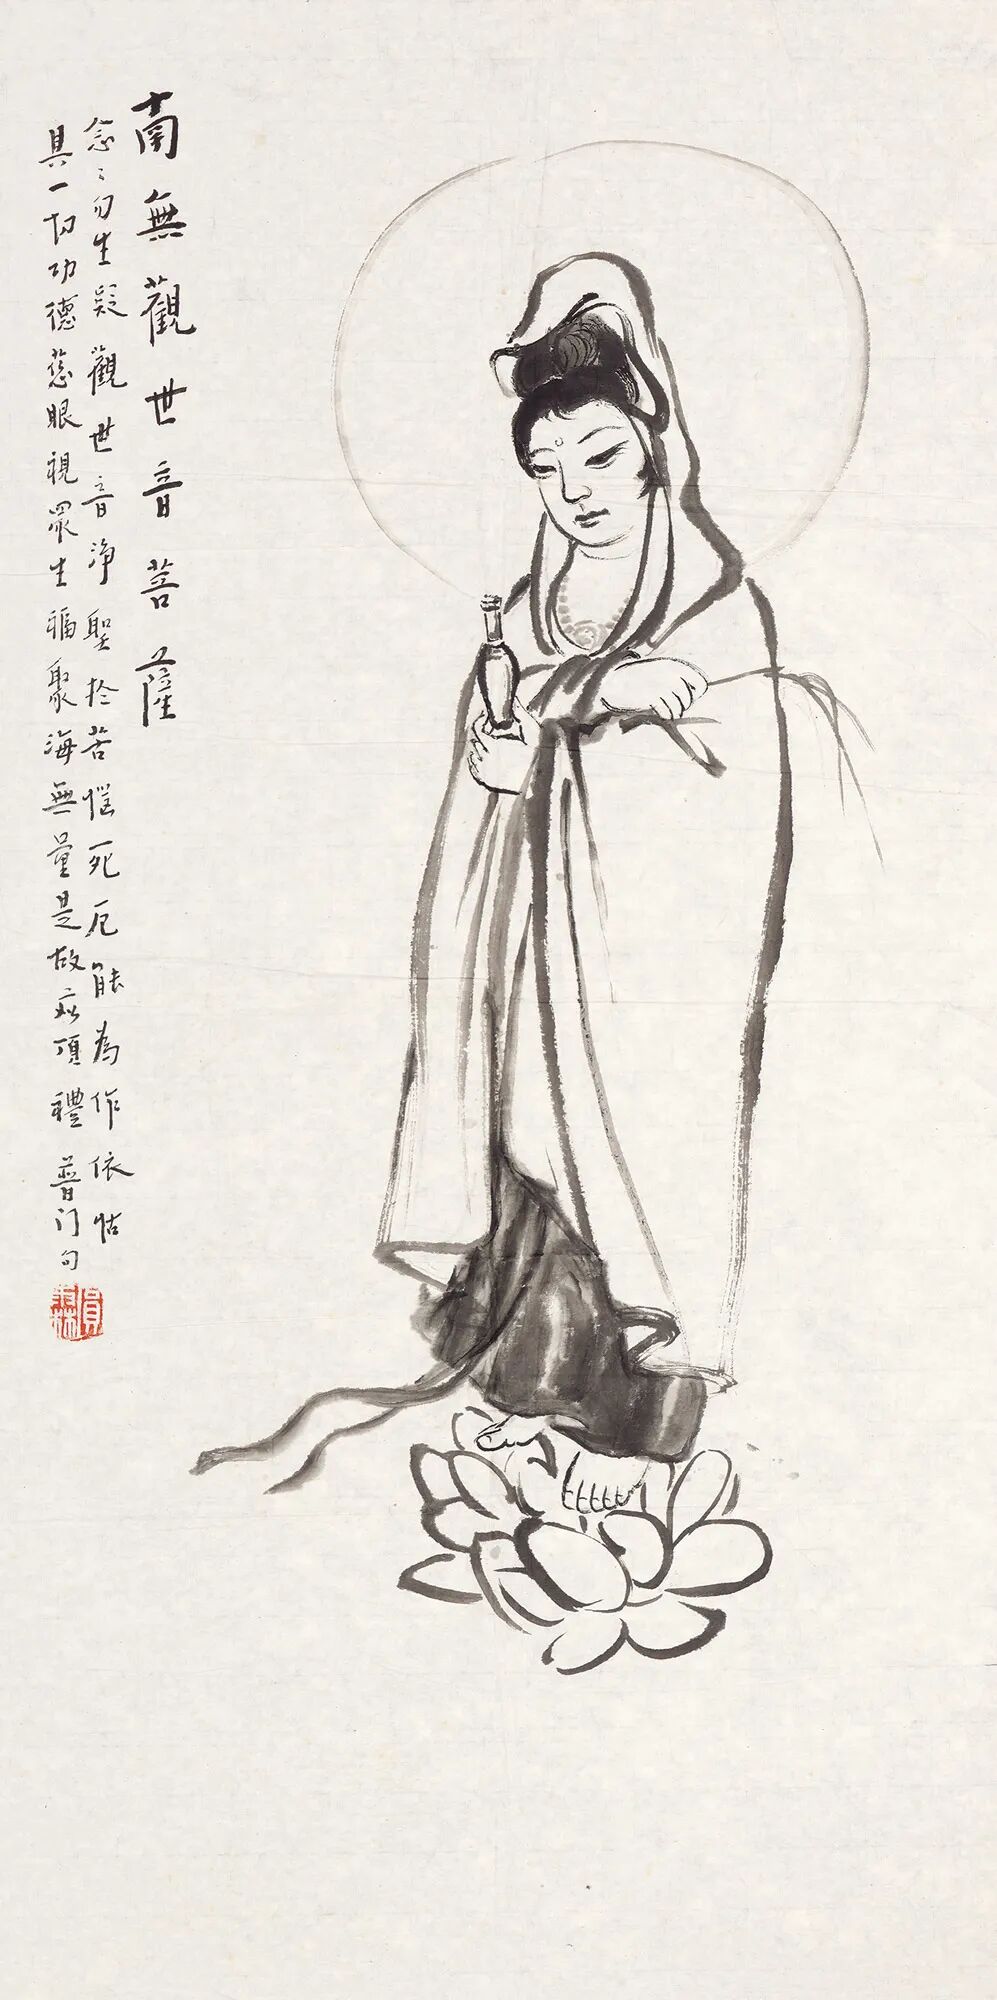 南無觀世音菩薩
念〻勿生疑觀世音淨聖於苦惱死厄能為作依怙
具一切功德慈眼視眾生福聚海無量是故應頂禮 普门句
圓霖